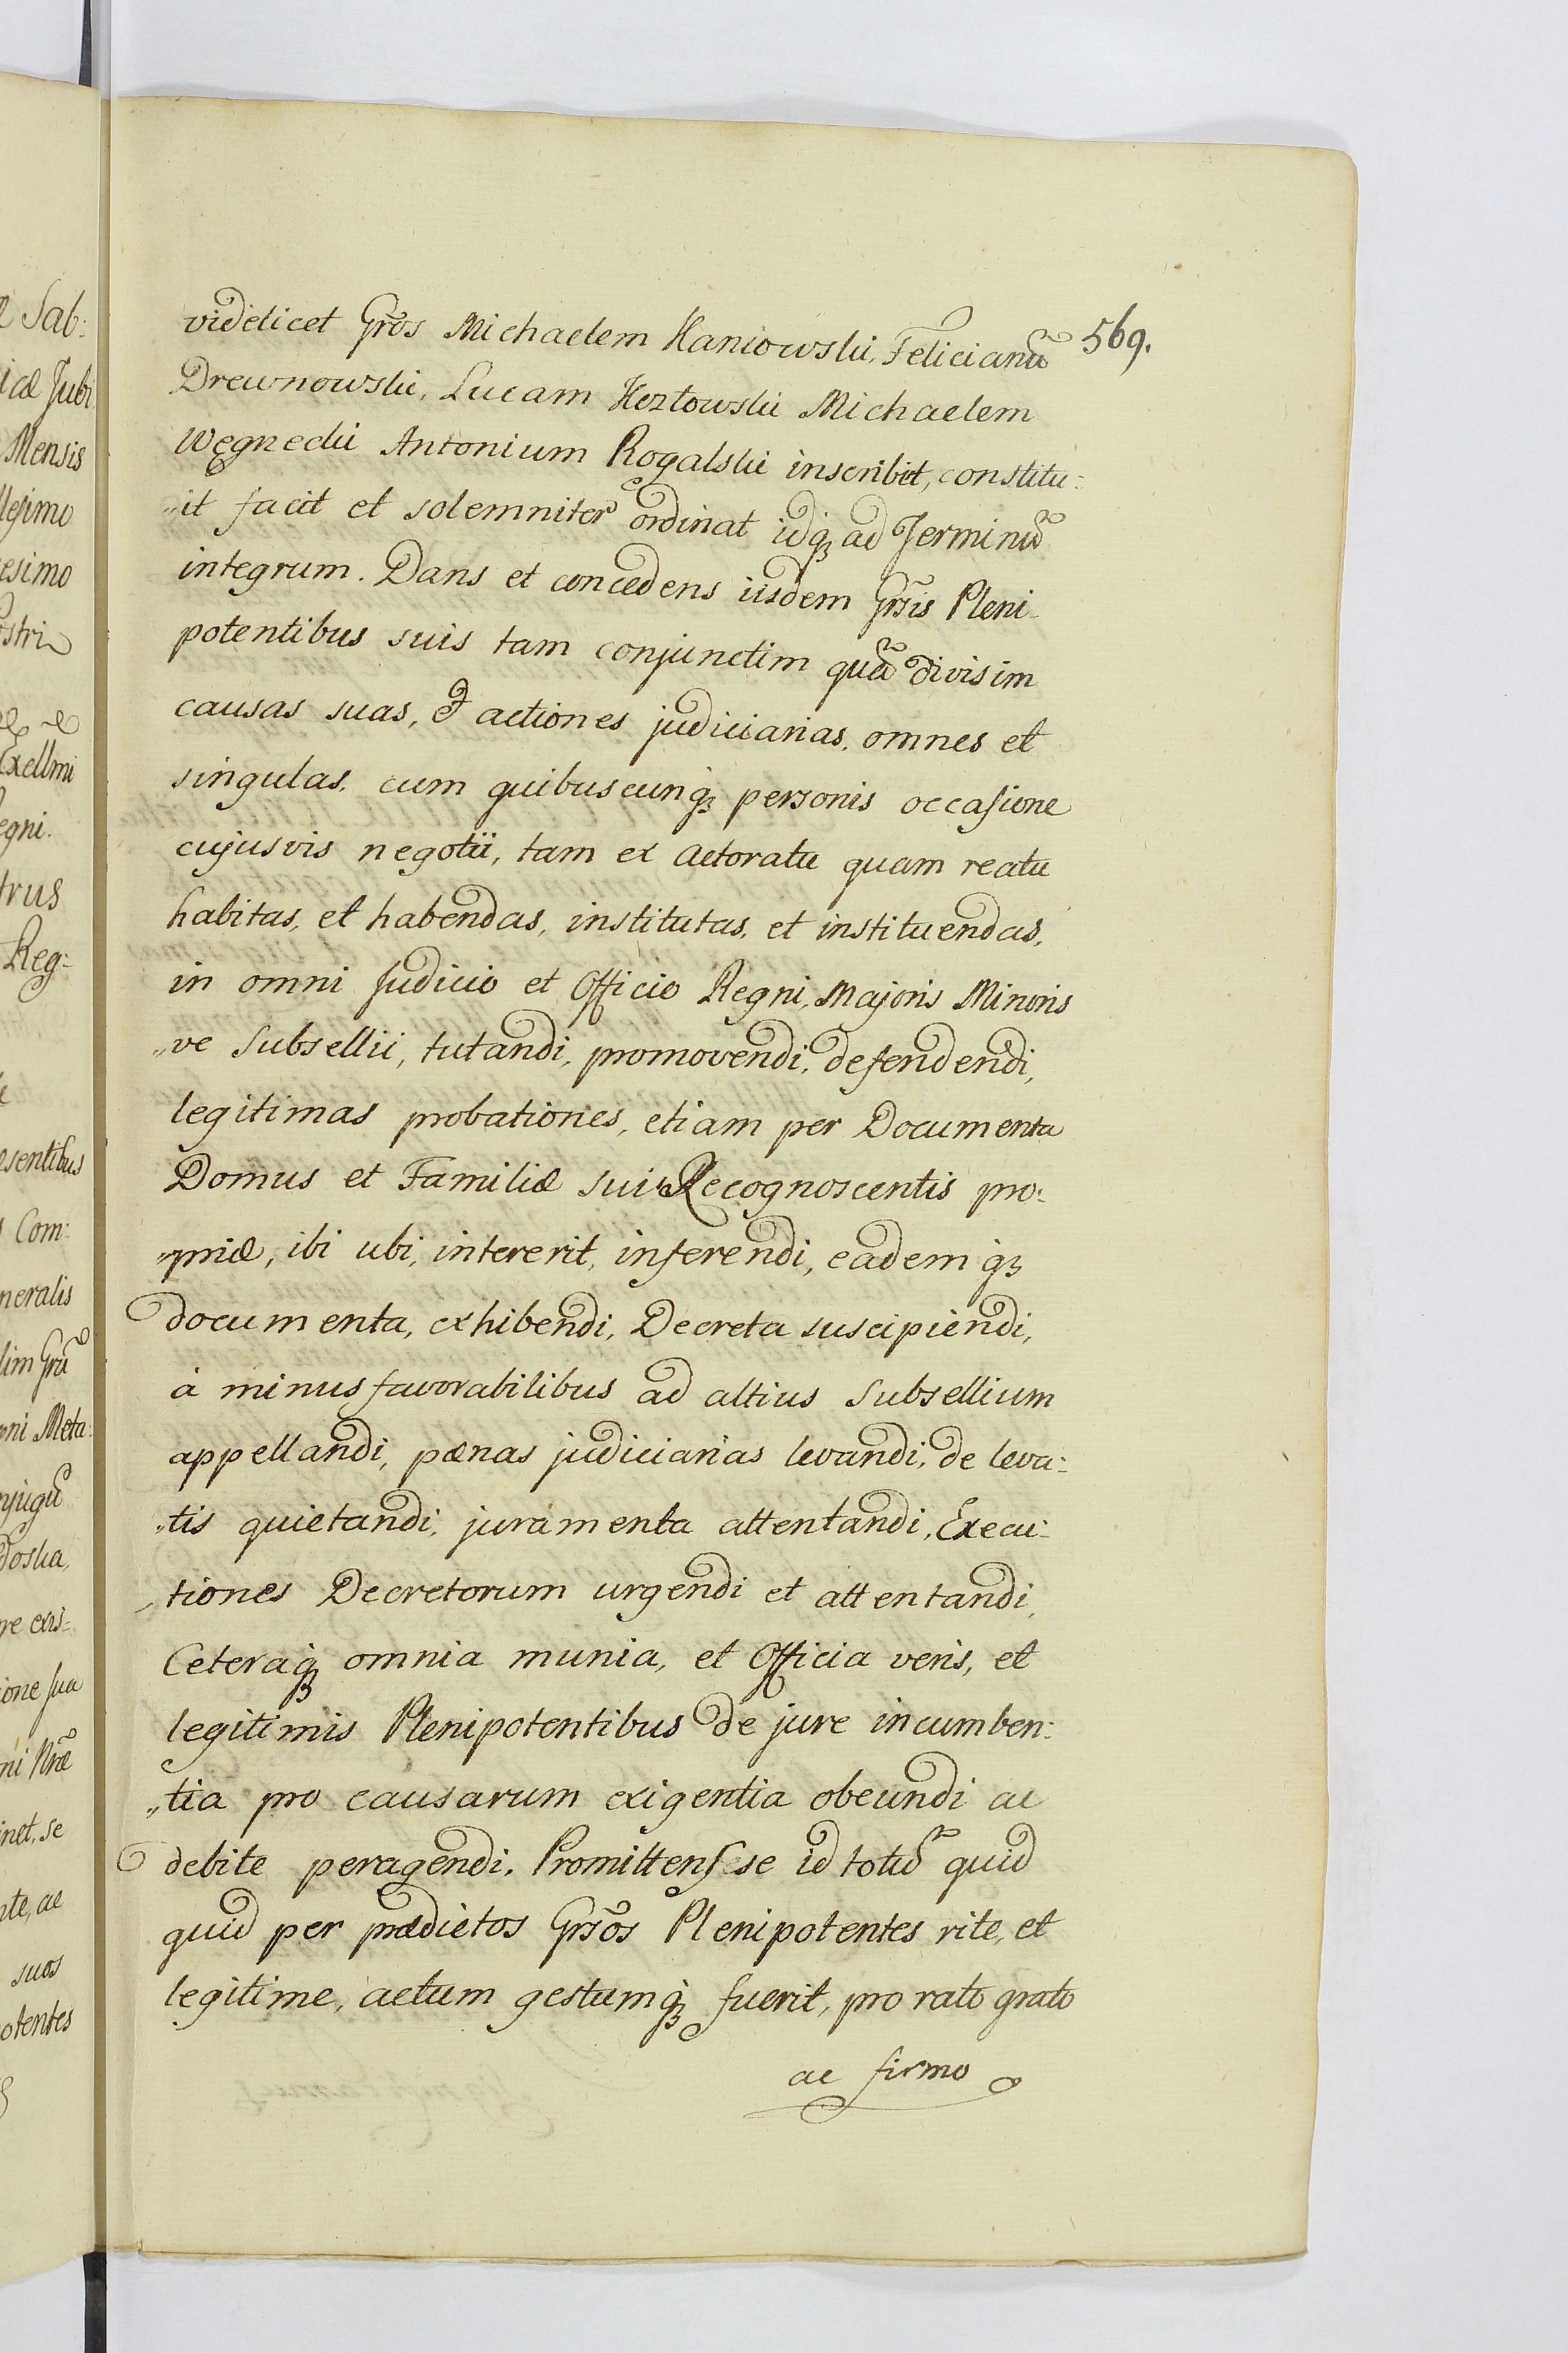 videlicet Grõs Michaelem Haniowski, Felicianũ 569.
Drewnowski, Lucam Kozłowski Michaelem
Węgnecki Antonium Rogalski inscribit, constitu:
„it facit et solemniter ordinat idq3 ad Terminũ
integrum. Dans et concedens iisdem Grsĩs Pleni
potentibus suis tam conjunctim quã divisim
causas suas, & actiones judiciarias, omnes et
singulas, cum quibuscunq3 personis occasione
cujusvis negotii, tam ex actoratu quam reatu
habitas, et habendas, institutas, et instituendas,
in omni Judicio et Officio Regni, Majoris Minoris
„ve Subsellii, tutandi, promovendi, defendendi,
legitimas probationes, etiam per Documenta
Domus et Familiæ sui Recognoscentis pro:
„priæ, ibi ubi, intererit, inferendi, eadem q3
documenta, exhibendi, Decreta suscipiendi,
à minus favorabilibus ad altius Subsellium
appellandi, pænas judiciarias levandi, de leva:
„tis quietandi, juramenta attentandi, Execu:
tiones Decretorum urgendi et attentandi,
Ceteraq3 omnia munia, et Officia veris, et
legitimis Plenipotentibus de jure incumben:
„tia pro causarum exigentia obeundi ac
debite peragendi. Promittens se id totũ quid
quid per prædictos Grsõs Plenipotentes rite, et
legitime, actum gestumq3 fuerit, pro rato grato
ac firmo